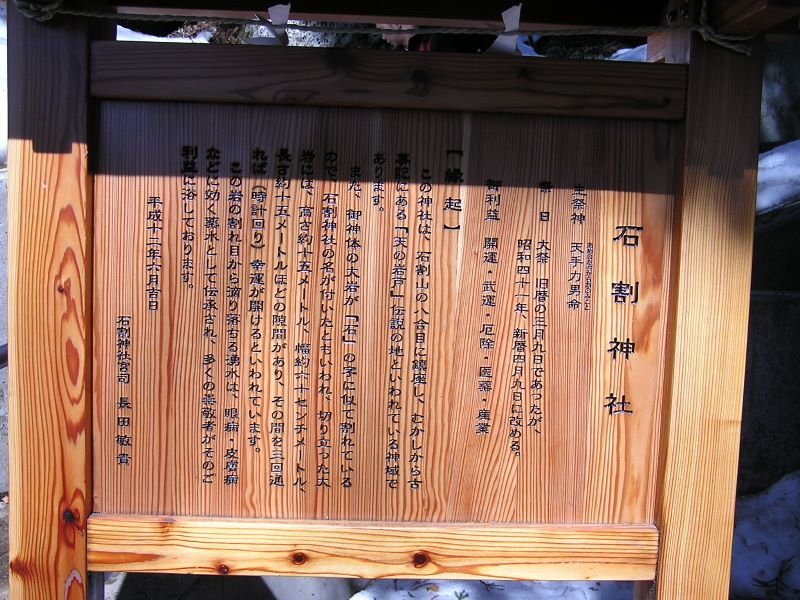 石割神社
主祭神　天手力男命
祭日　大祭　旧暦の三月九日であったが、
昭和四十一年、新暦四月九日に改める。
御利益　開運・武運・厄除・医薬・産業
【縁起】
この神社は、石割山の八合目に鎮座し、むかしから古
事記にある「天の岩戸」伝説の地といわれている神域で
あります。
また、御神体の大岩が、「石」の字に似て割れている
ので、石割神社の名が付いたともいわれ、切り立った大
岩には、高さ約十五メートル、幅約六十センチメートル、
長さ約十五メートルほどの隙間があり、その間を三回通
れば（時計回り）幸運が開けるといわれています。
この岩の割れ目から滴り落ちる湧水は、眼病・皮膚病
などに効く薬水として伝承され、多くの崇敬者がそのご
利益に浴しております。
平成十二年六月吉日
石割神社宮司　長田敏貴